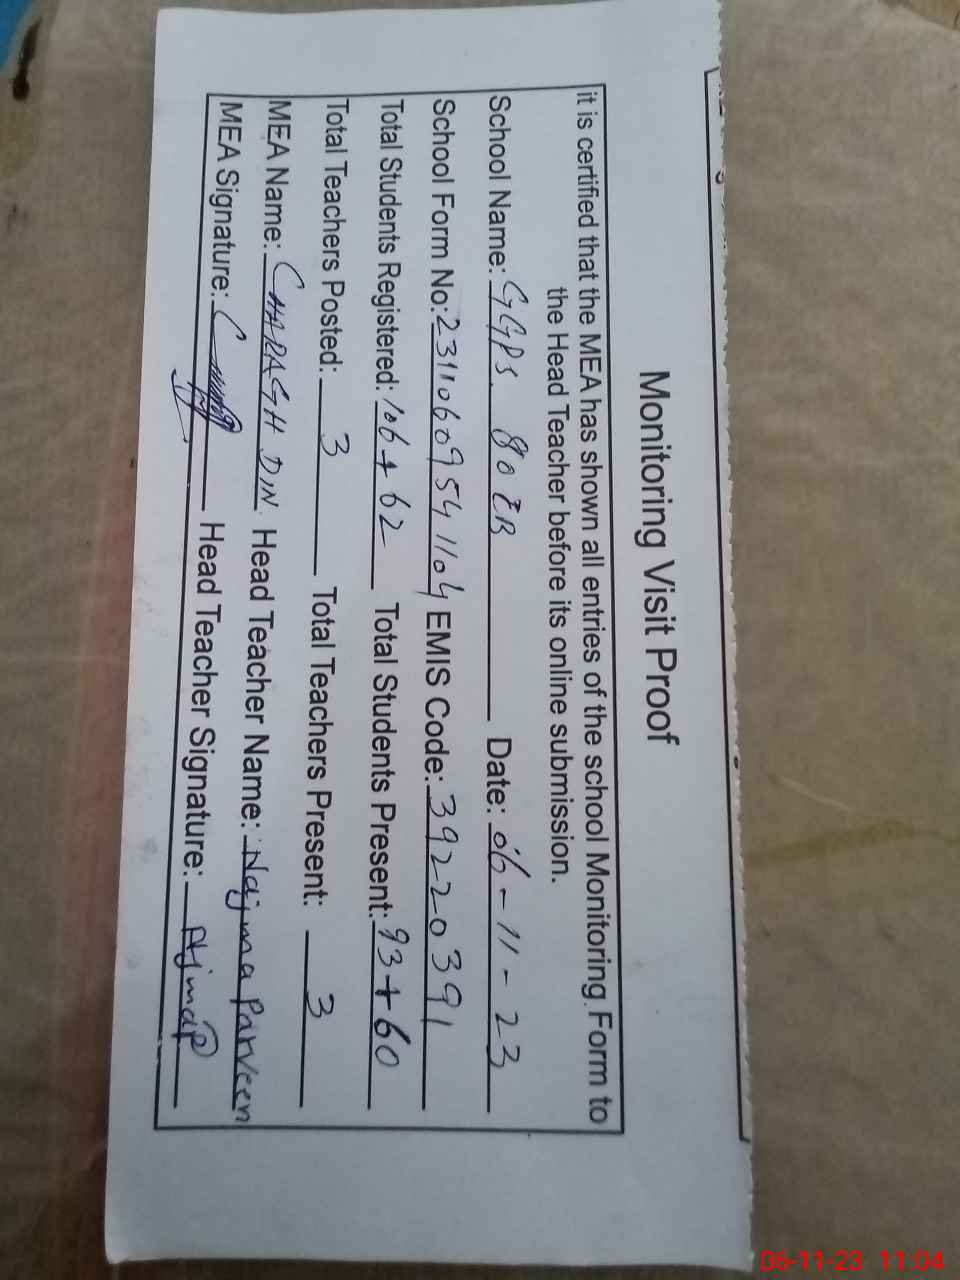 Monitoring Visit Proof
it is certified that the MEA has shown all entries of the school Monitoring Form to
the Head Teacher before its online submission.
School Name: GGPS 80 EB Date: 06-11-23
School Form No: 2311060954 1104 EMIS Code: 39220391
Total Students Registered: 106+62 Total Students Present: 93+60
Total Teachers Posted: 3 Total Teachers Present: 3
MEA Name: CHARAGH DIN. Head Teacher Name: Najma Parveen
MEA Signature: Head Teacher Signature:
06-11-23 11:04